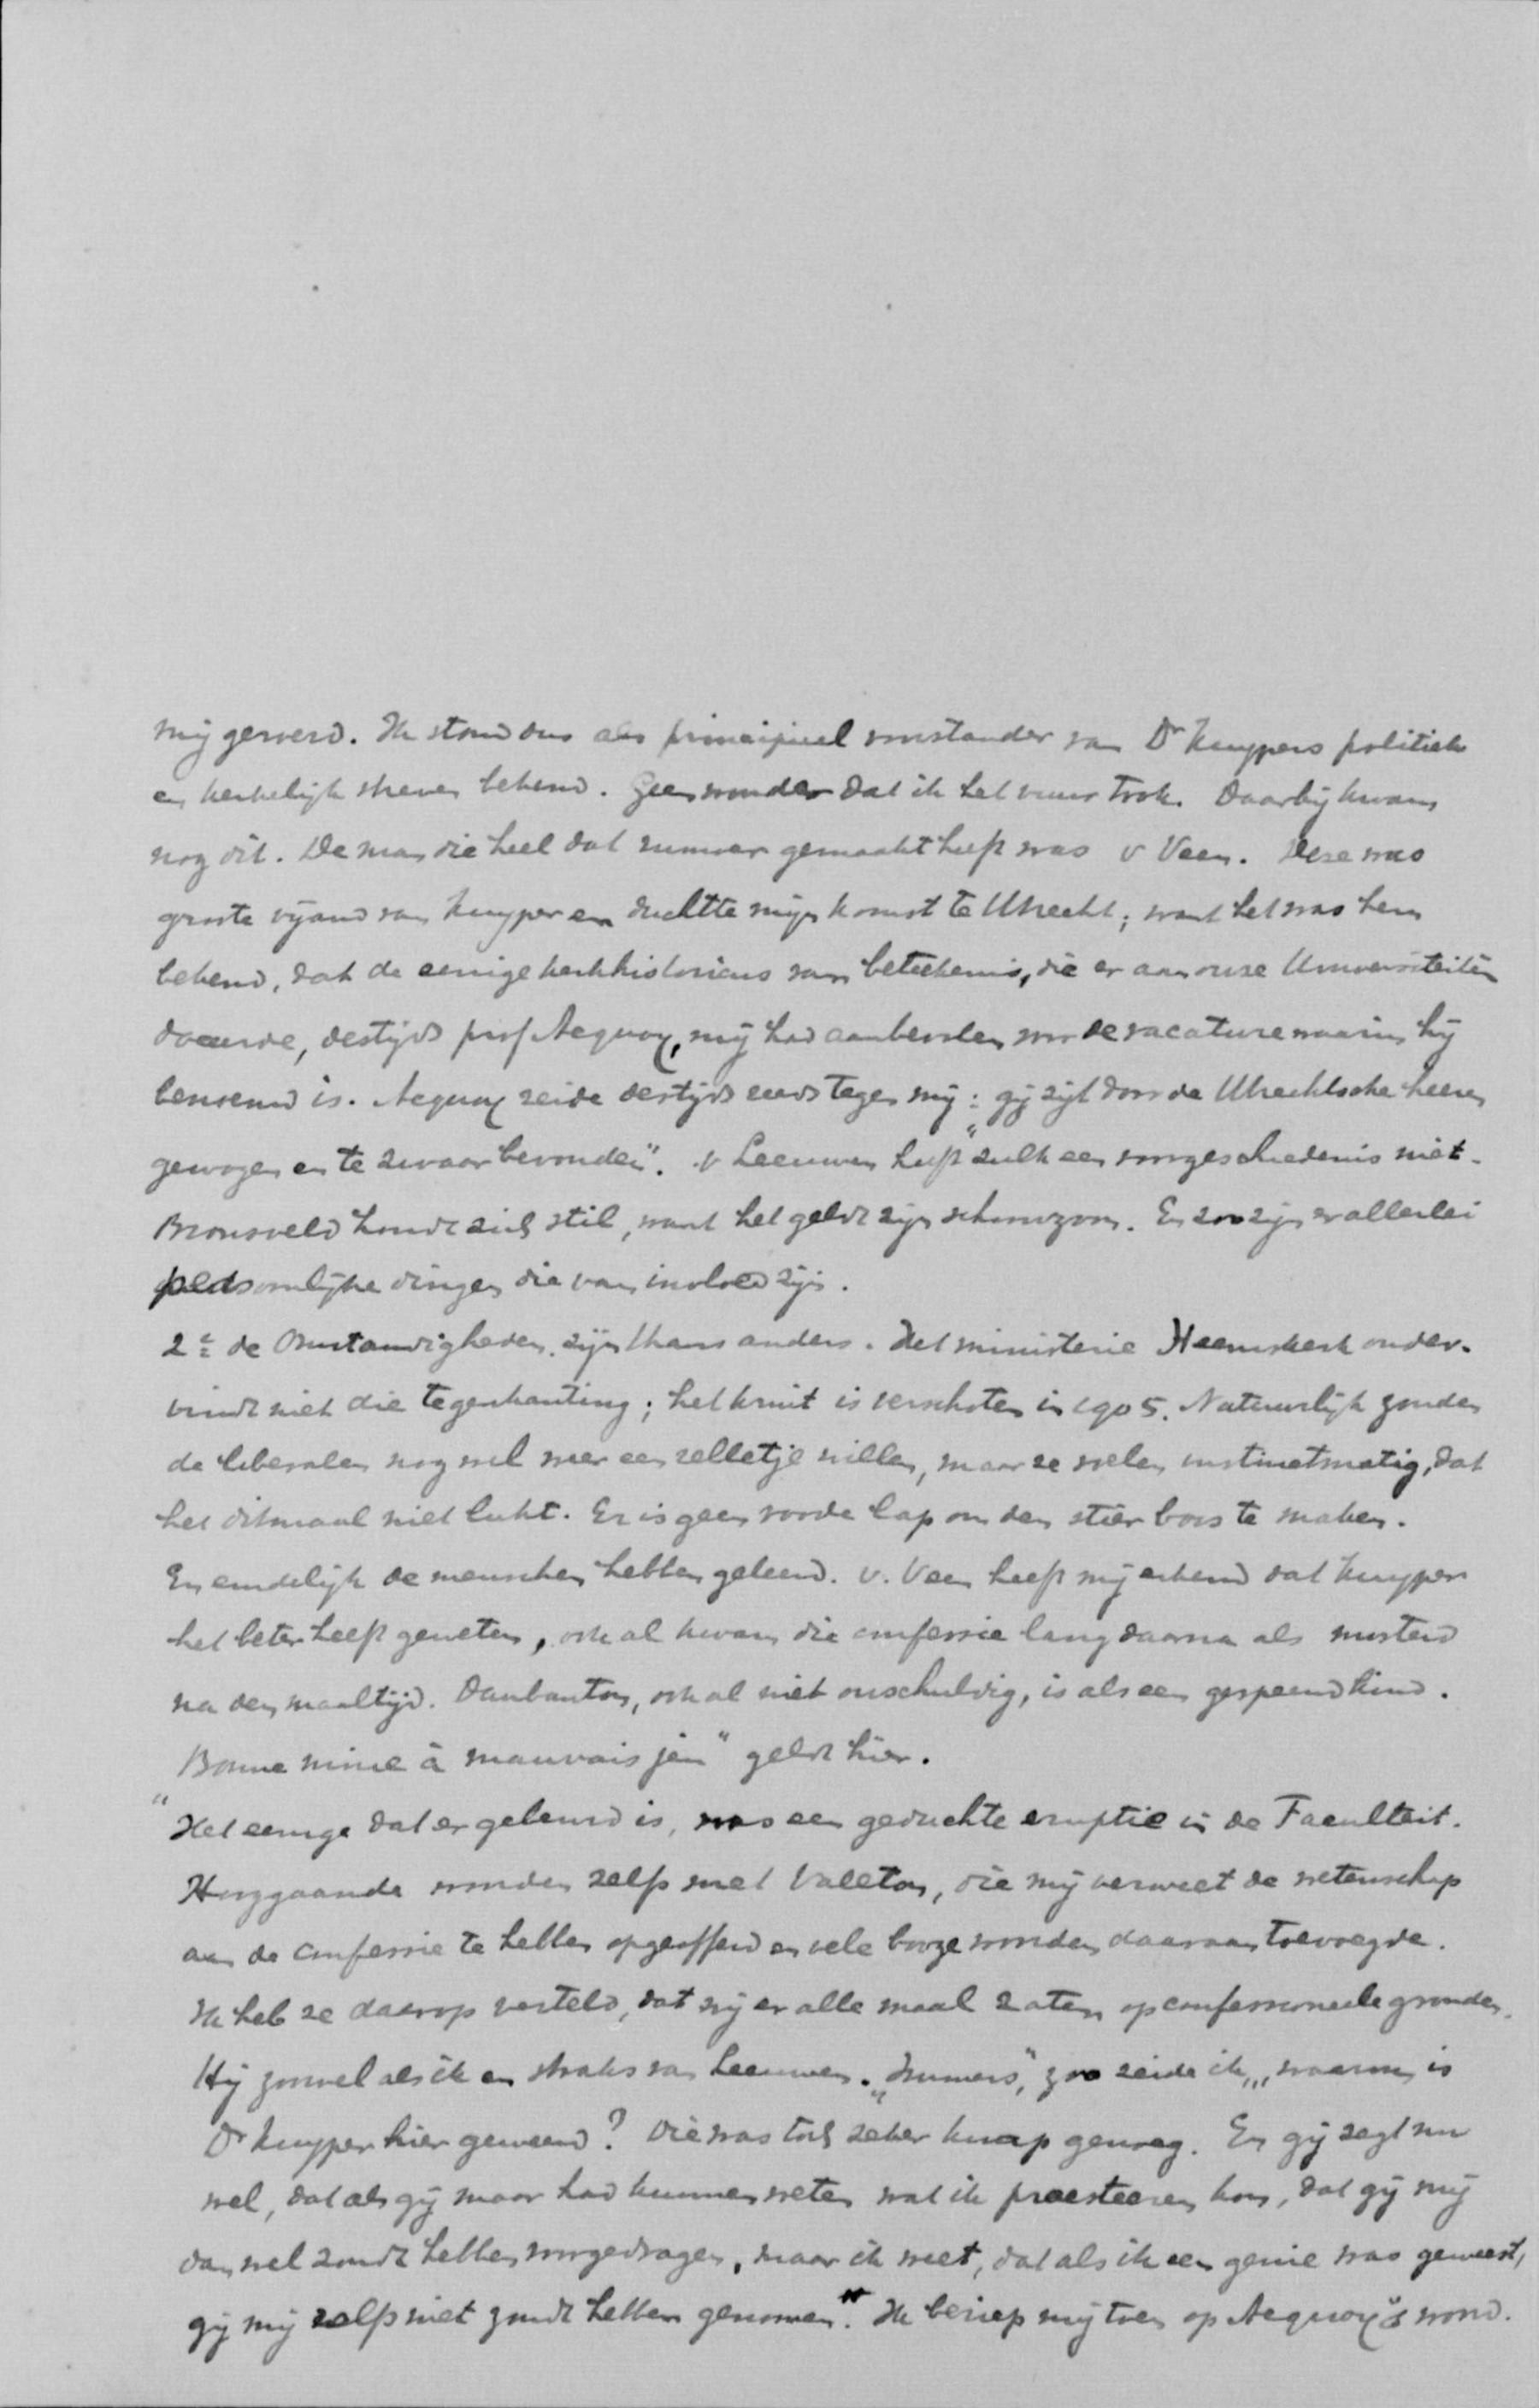 mij gewend. Ik stond dus als principieel voorstander van Dr Kuypers politiek
en kerkelijk streven bekend. Geen wonder dat ik het vuur trok. Daarbij kwam
nog dit. De man die heel dat rumoer gemaakt heeft was v Veen. Deze was
groote vijand van Kuyper en duchtte mijn komst te Utrecht; want het was hem
bekend, dat de eenige kerkhistoricus van beteekenis, die er aan onze Universiteiten
doceerde, destijds prof Acquoy, mij had aanbevolen voor de vacature waarin hij
benoemd is. Acquoy zeide destijds reeds tegen mij: „gij zijt door de Utrechtsche heeren
gewogen en te zwaar bevonden”. v Leeuwen heeft zulk een voorgeschiedenis niet.
Bronsveld houdt zich stil, want het geldt zijn schoonzoon. En zoo zijn er allerlei
persoonlijke dingen die van invloed zijn.
2e de Omstandigheden zijn thans anders. Het ministerie Heemskerk onder-
vindt niet die tegenkanting; het kruit is verschoten in 1905. Natuurlijk zouden
de liberalen nog wel weer een relletje willen, maar ze voelen instinctmatig, dat
het ditmaal niet lukt. Er is geen roode lap om den stier boos te maken.
En eindelijk de menschen hebben geleerd. v. Veen heeft mij erkend dat Kuyper
het beter heeft geweten, ook al kwam die confessie lang daarna als mosterd
na den maaltijd. Daubanton, ook al niet onschuldig, is als een gespeend kind.
„Bonne mine à mauvais jeu” geldt hier.
Het eenige dat er gebeurd is, was een geduchte eruptie in de Faculteit.
Hooggaande woorden zelfs met Valeton, die mij verweet de wetenschap
aan de confessie te hebben opgeofferd en vele booze woorden daaraan toevoegde.
Ik heb ze daarop verteld, dat wij er alle maal zaten op confessioneele gronden.
Hij zoowel als ik en straks van Leeuwen. „Immers,” zoo zeide ik, „waarom is
Dr Kuyper hier geweerd? Die was toch zeker knap genoeg. En gij zegt nu
wel, dat als gij maar had kunnen weten wat ik praesteeren kon, dat gij mij
dan wel zoudt hebben voorgedragen, maar ik weet, dat als ik een genie was geweest,
gij mij zelfs niet zoudt hebben genomen.” Ik beriep mij toen op Acquoy's woord.